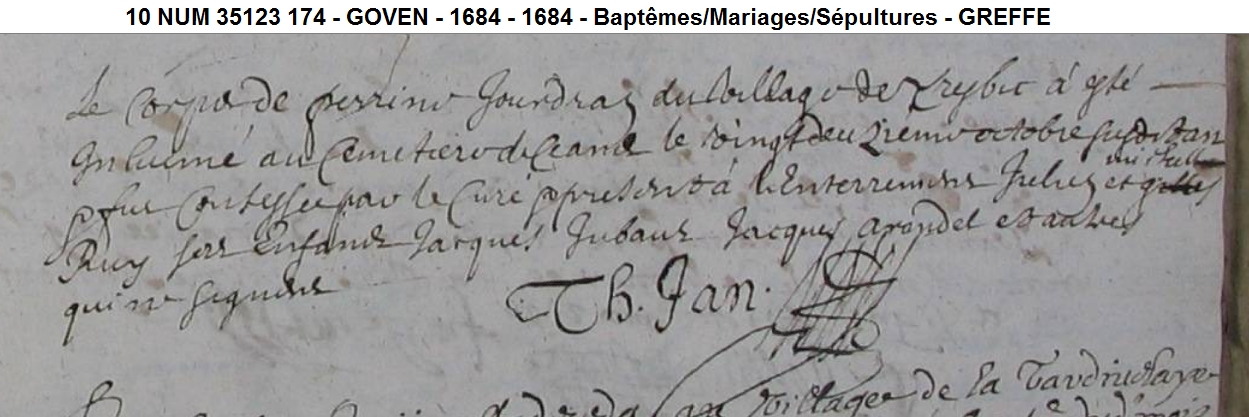 10 NUM 35123 174 - GOVEN - 1684 - 1684 - Baptêmes/Mariages/Sépultures - GREFFE
Le corps de perrine Jourdran du village de à esté
Inhumé au Cemetiere de Ceans le vingt deuziemme octobre susdit an
fut confessée par le Curé presents à l'Enterrement Julien et
Ruy ses Enfans Jacques Jubaux Jacques arondel et autres
qui ne signent
Th. Jan.
village de la